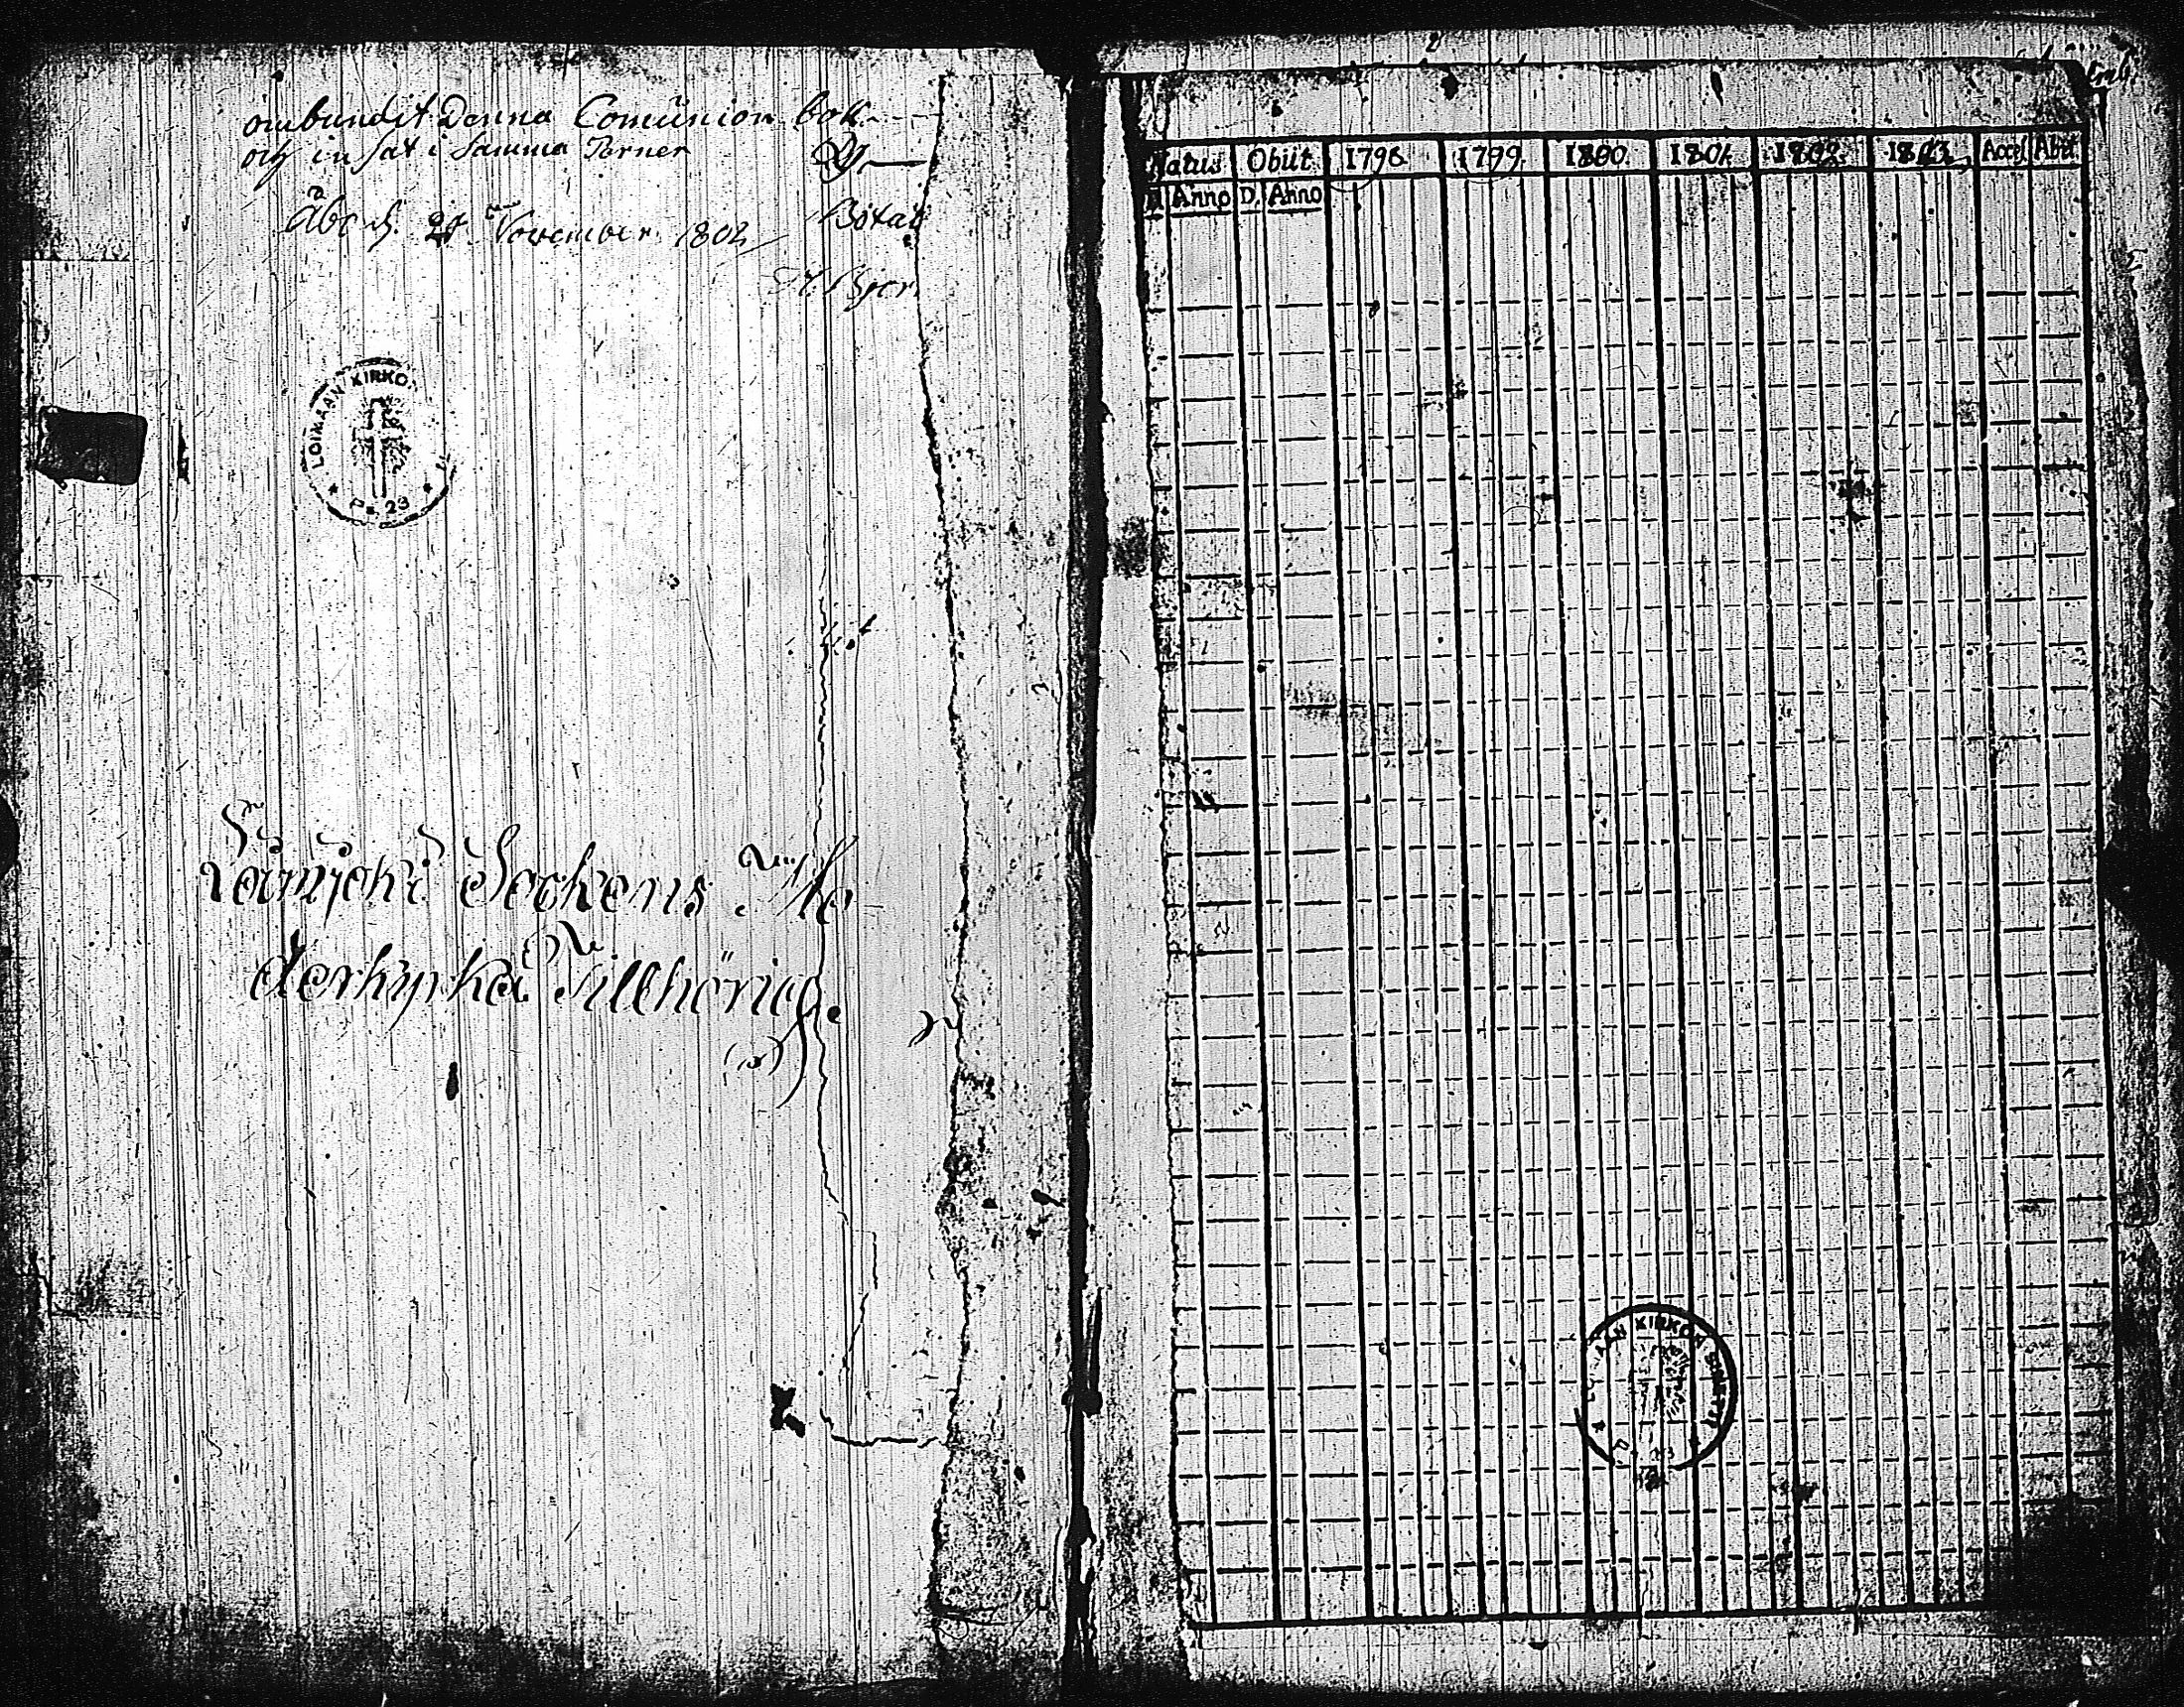 ombundit Denna Comunion bok
och in sat i Samma Perner
Åbo d. November 1802
LOIMAAN KIRKO
P 23
Sockens Mo
derkyrka Tillhörig.
Natus Obiit 1798. 1799. 1800. 1801. 1802. 1803. Acces. Abiit
D. Anno D. Anno
AAN KIRKON